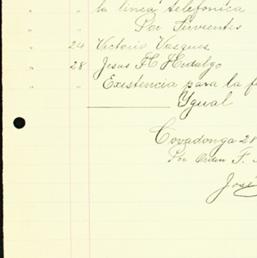 la línea telefónica
Por Sirvientes
24 Victorio Vasques
28 Jesus H Hidalgo
Existencia para la f
Ygual
Covadonga 28
Por Orden F.
José